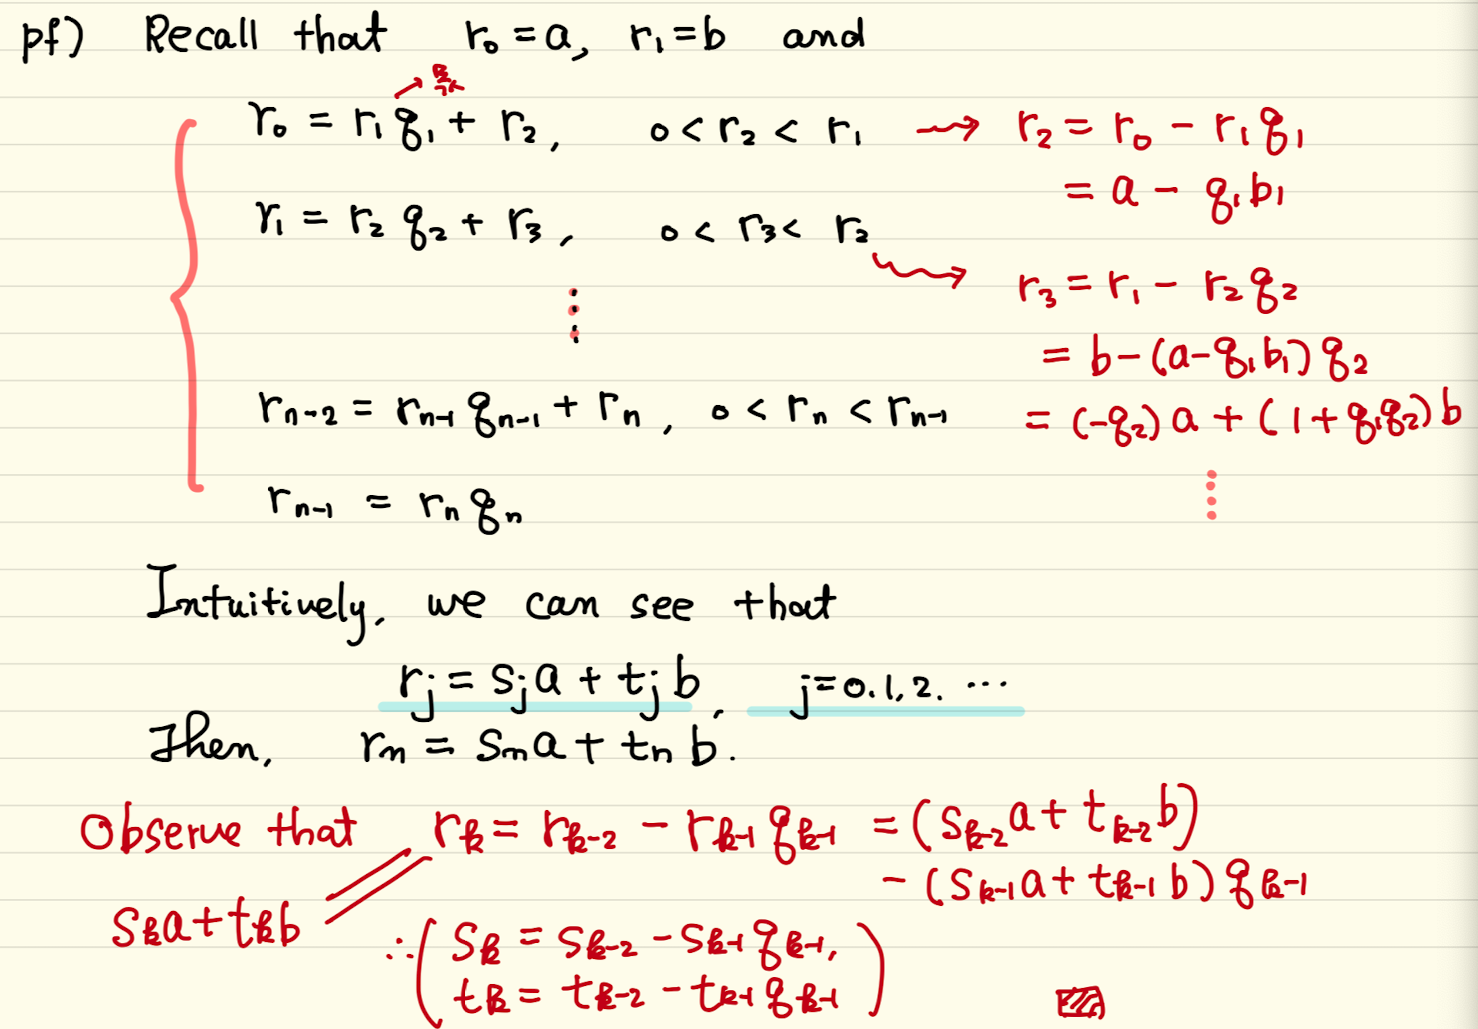 pf) Recall that r₀ = a, r₁ = b and
→ 몫
r₀ = r₁q₁ + r₂, 0 < r₂ < r₁ → r₂ = r₀ - r₁q₁
= a - q₁b₁
r₁ = r₂q₂ + r₃, 0 < r₃ < r₂ → r₃ = r₁ - r₂q₂
= b - (a - q₁b₁)q₂
⋮
rₙ₋₂ = rₙ₋₁qₙ₋₁ + rₙ, 0 < rₙ < rₙ₋₁
= (-q₂)a + (1 + q₁q₂)b
⋮
rₙ₋₁ = rₙqₙ
Intuitively, we can see that
r_j = s_j a + t_j b, j = 0.1,2. ⋯
Then, rₙ = sₙa + tₙb.
Observe that r_k = r_{k-2} - r_{k-1}q_{k-1} = (s_{k-2}a + t_{k-2}b)
- (s_{k-1}a + t_{k-1}b)q_{k-1}
s_k a + t_k b
∴ ( s_k = s_{k-2} - s_{k-1}q_{k-1},
t_k = t_{k-2} - t_{k-1}q_{k-1} )